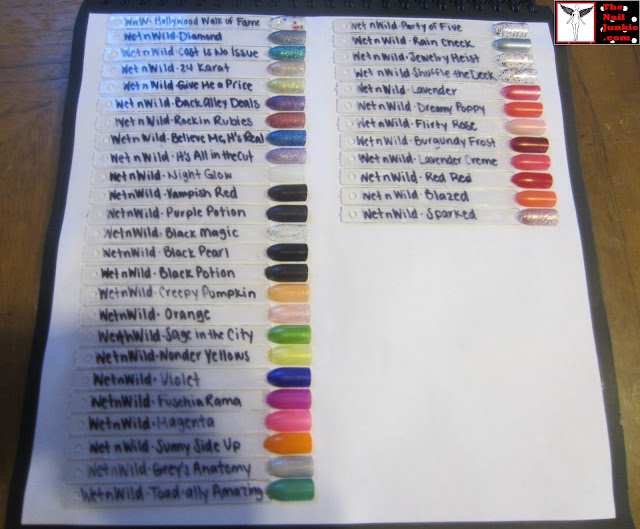 WnW·Hollywood Walk of Fame
WetnWild·Diamond
WetnWild·Cost Is No Issue
WetnWild·24 Karat
WetnWild·Give Me a Price
WetnWild·Back Alley Deals
WetnWild·Rockin Rubies
WetnWild·Believe Me, It's Real
WetnWild·It's All in the Cut
WetnWild·Night Glow
WetnWild·Vampish Red
WetnWild·Purple Potion
WetnWild·Black Magic
WetnWild·Black Pearl
WetnWild·Black Potion
WetnWild·Creepy Pumpkin
WetnWild·Orange
WetnWild·Sage in the City
WetnWild·Wonder Yellows
WetnWild·Violet
WetnWild·Fuschia Rama
WetnWild·Magenta
WetnWild·Sunny Side Up
WetnWild·Grey's Anatomy
WetnWild·Toad-ally Amazing
WetnWild·Party of Five
WetnWild·Rain Check
WetnWild·Jewelry Heist
WetnWild·Shuffle the Deck
WetnWild·Lavender
WetnWild·Dreamy Poppy
WetnWild·Flirty Rose
WetnWild·Burgundy Frost
WetnWild·Lavender Creme
WetnWild·Red Red
WetnWild·Blazed
WetnWild·Sparked
The
Nail
Junkie
.com